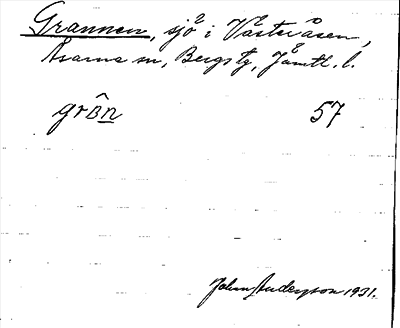 Grannen, sjö i Västeråsen,
Åsarne sn, Bergs tg, Jämtl. l.
grân 57
John Anderson 1931.